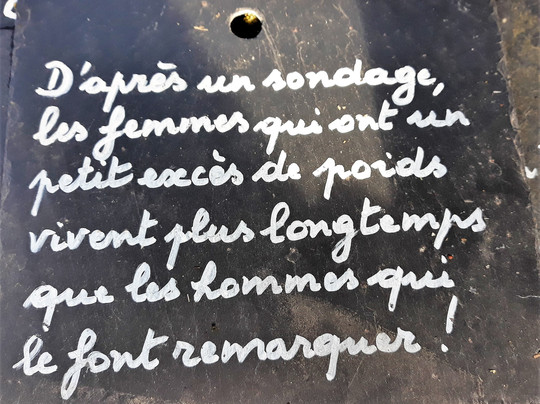 D'après un sondage,
les femmes qui ont un
petit excès de poids
vivent plus longtemps
que les hommes qui
le font remarquer !